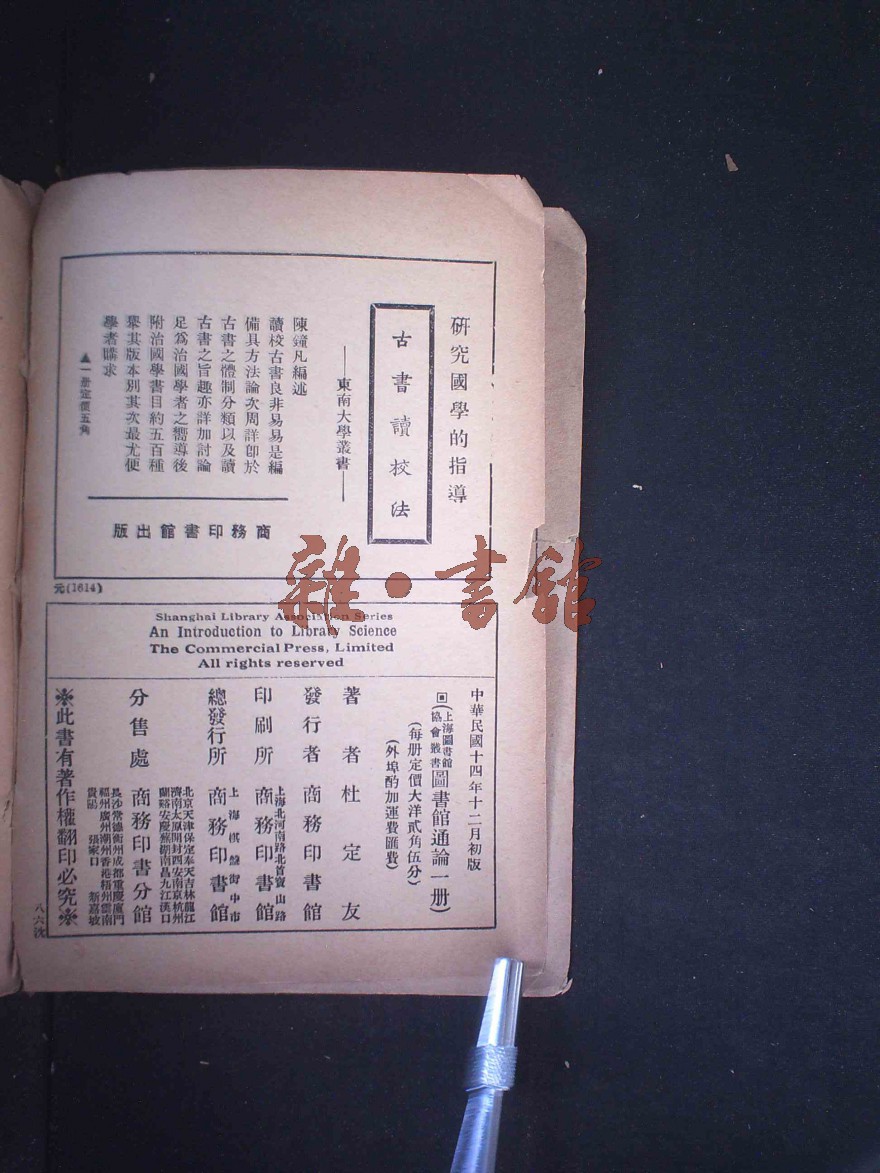 研究國學的指導
古書讀校法
——東南大學叢書——
陳鐘凡編述
讀校古書良非易易是編
備具方法論次周詳卽於
古書之體制分類以及讀
古書之旨趣亦詳加討論
足爲治國學者之嚮導後
附治國學書目約五百種
舉其版本別其次最尤便
學者購求
▲一册定價五角
商務印書館出版
元(1614)
雜·書館
Shanghai Library Association Series
An Introduction to Library Science
The Commercial Press, Limited
All rights reserved
中華民國十四年十二月初版
回(上海圖書館協會叢書圖書館通論一册)
(每册定價大洋貳角伍分)
(外埠酌加運費匯費)
著者 杜定友
發行者 商務印書館
上海北河南路北首寶山路
印刷所 商務印書館
上海棋盤街中市
總發行所 商務印書館
北京天津保定奉天吉林龍江
濟南太原開封西安南京杭州
蘭谿安慶蕪湖南昌九江漢口
分售處 商務印書分館
長沙常德衡州成都重慶廈門
福州廣州潮州香港梧州雲南
貴陽 張家口 新嘉坡
※此書有著作權翻印必究※
八六沈